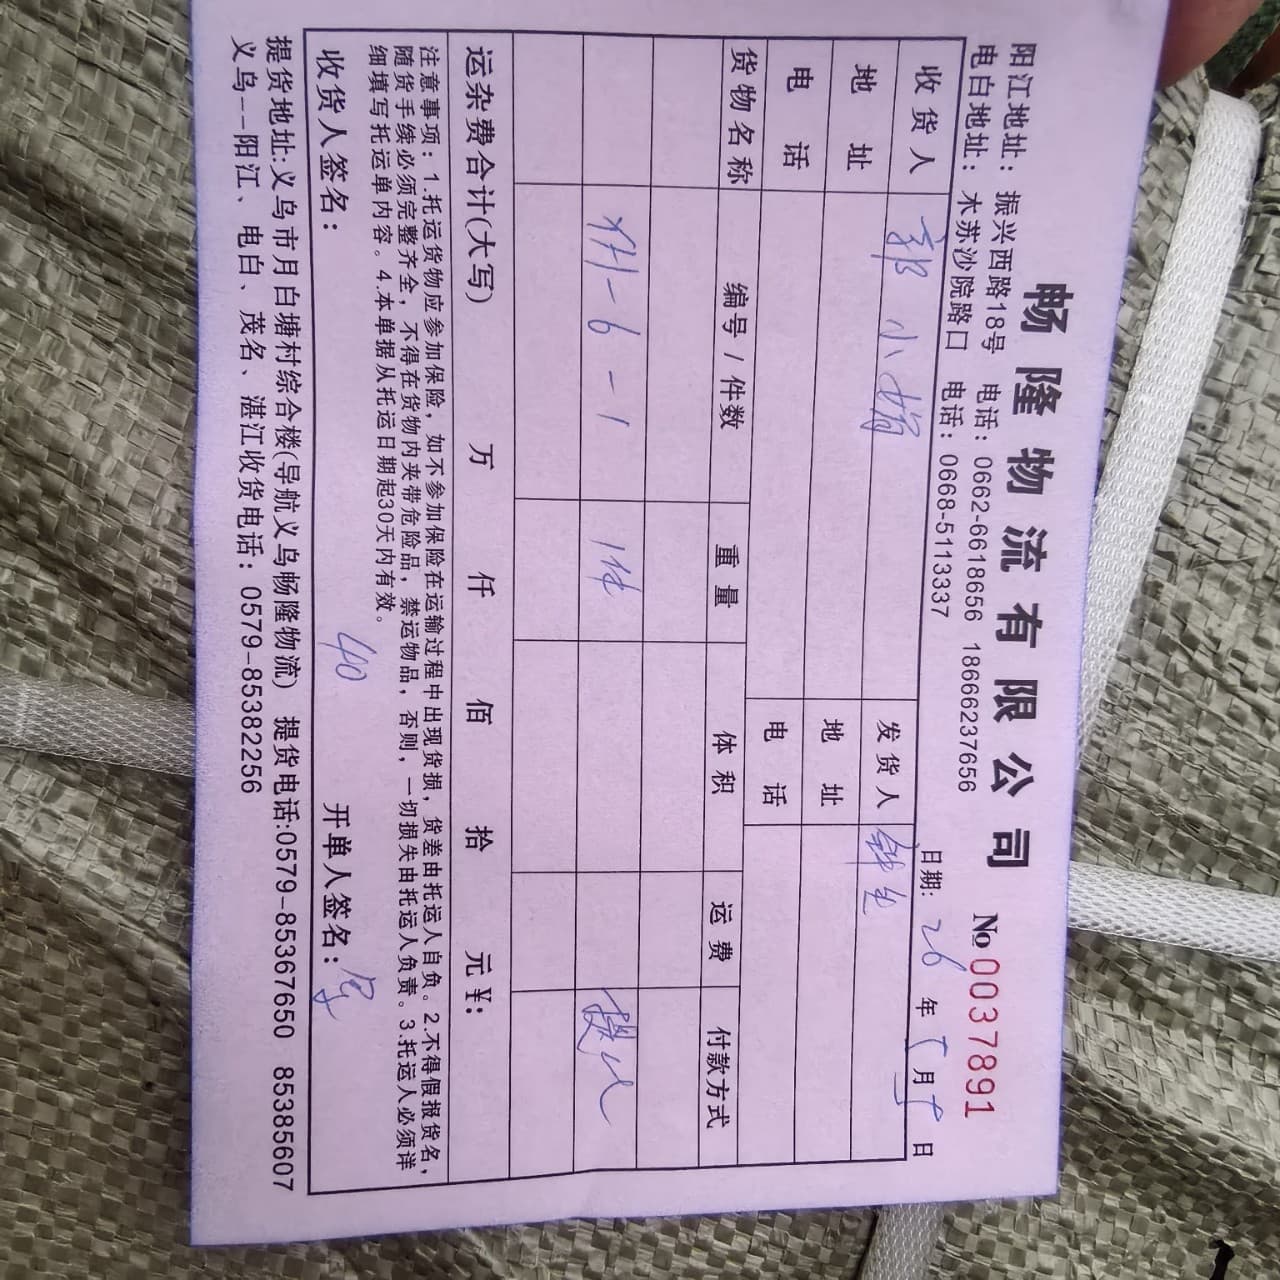 畅隆物流有限公司
No 0037891
阳江地址：振兴西路18号 电话：0662-6618656 18666237656
电白地址：木苏沙院路口 电话：0668-5113337
日期：26年5月5日
收货人 郭小娟 发货人
地址 地址
电话 电话
货物名称 编号/件数 重量 体积 运费 付款方式
XH-6-1 1件
运杂费合计(大写) 万 仟 佰 拾 元¥：
注意事项：1.托运货物应参加保险，如不参加保险在运输过程中出现货损，货差由托运人自负。2.不得假报货名，
随货手续必须完整齐全，不得在货物内夹带危险品，禁运物品，否则，一切损失由托运人负责。3.托运人必须详
细填写托运单内容。4.本单据从托运日期起30天内有效。
收货人签名： 40 开单人签名：
提货地址:义乌市月白塘村综合楼(导航义乌畅隆物流) 提货电话:0579-85367650 85385607
义乌--阳江、电白、茂名、湛江收货电话：0579-85382256